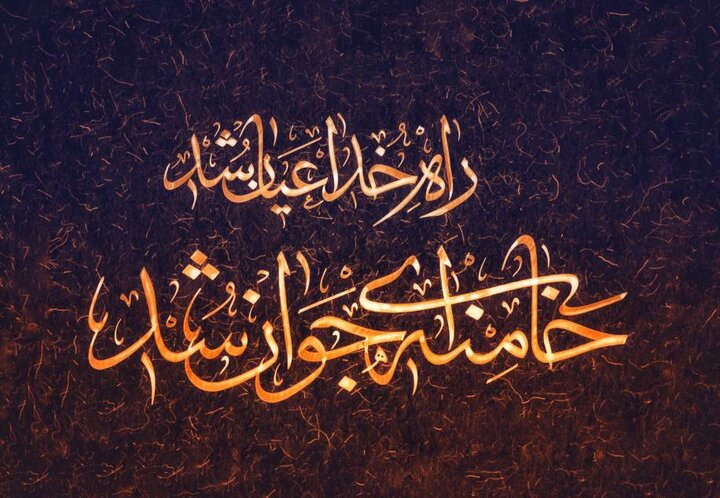 راهِ خُدا عیان بشُد
خامنه‌ای جَوان شُد